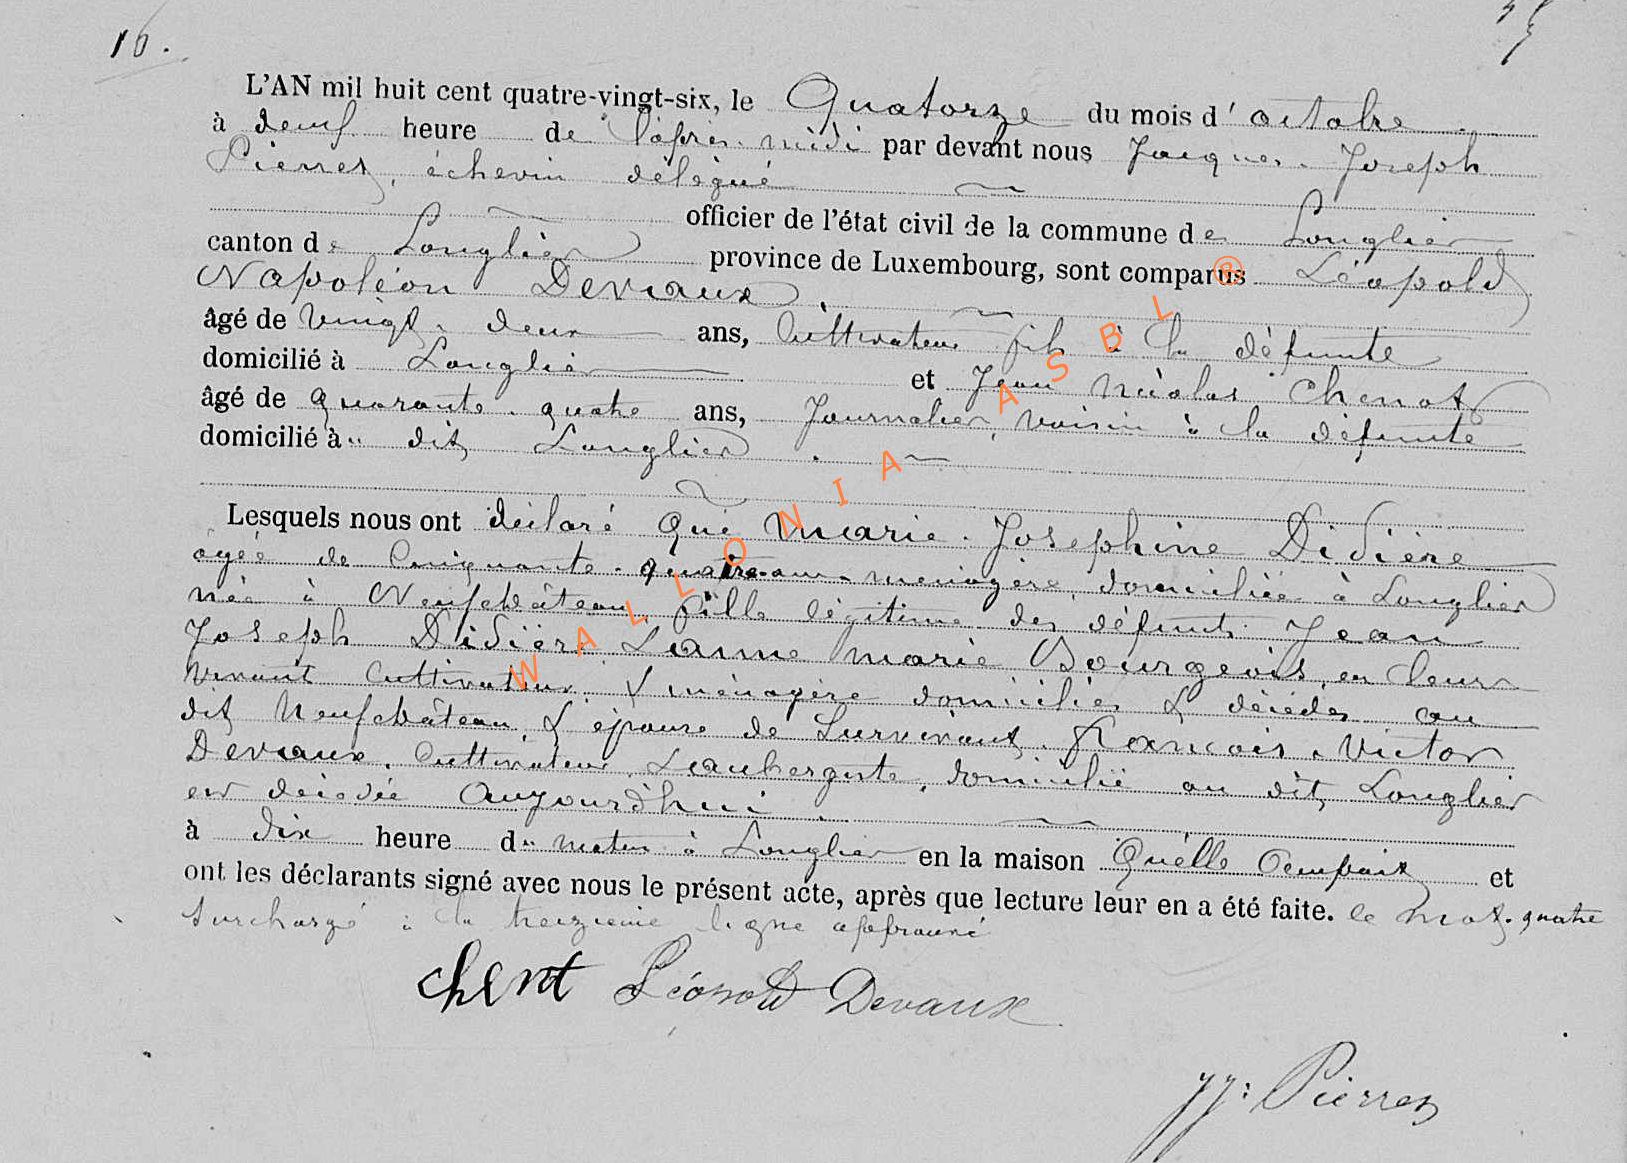 16.
L'AN mil huit cent quatre-vingt-six, le Quatorze du mois d'octobre
à deux heure de l'après-midi par devant nous Jacques-Joseph
Pierret, échevin délégué
officier de l'état civil de la commune de Longlier
canton de Longlier province de Luxembourg, sont comparus Léopold
Napoléon Devaux,
âgé de vingt-deux ans, Cultivateur fils à la défunte
domicilié à Longlier et Jean Nicolas Chenot
âgé de quarante-quatre ans, Journalier, voisin à la défunte
domicilié au dit Longlier.
Lesquels nous ont déclaré que Marie-Josephine Didière
agée de Cinquante-quatre ans, ménagère, domiciliée à Longlier
née à Neufchâteau, fille légitime des défunts Jean
Joseph Didière & Anne Marie Bourgeois, en leur
vivant Cultivateur & ménagère domiciliés & décédés au
dit Neufchâteau, & épouse de Survivant François-Victor
Devaux, Cultivateur & aubergiste, domicilié au dit Longlier
est décédée Aujourd'hui
à dix heure du matin à Longlier en la maison Qu'elle Occupait et
ont les déclarants signé avec nous le présent acte, après que lecture leur en a été faite. le mot quatre
surchargé à la treizième ligne approuvé
Chenot Léopold Devaux
JJ: Pierret
WALLONIA ASBL ®